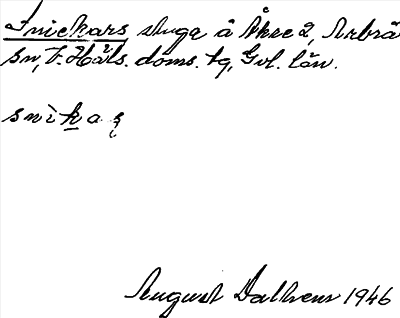 Snickars stuga å Åkre 2, Arbrå
sn, V. Häls. doms. tg, Gvl. län.
snìkaș
August Dalhem 1946